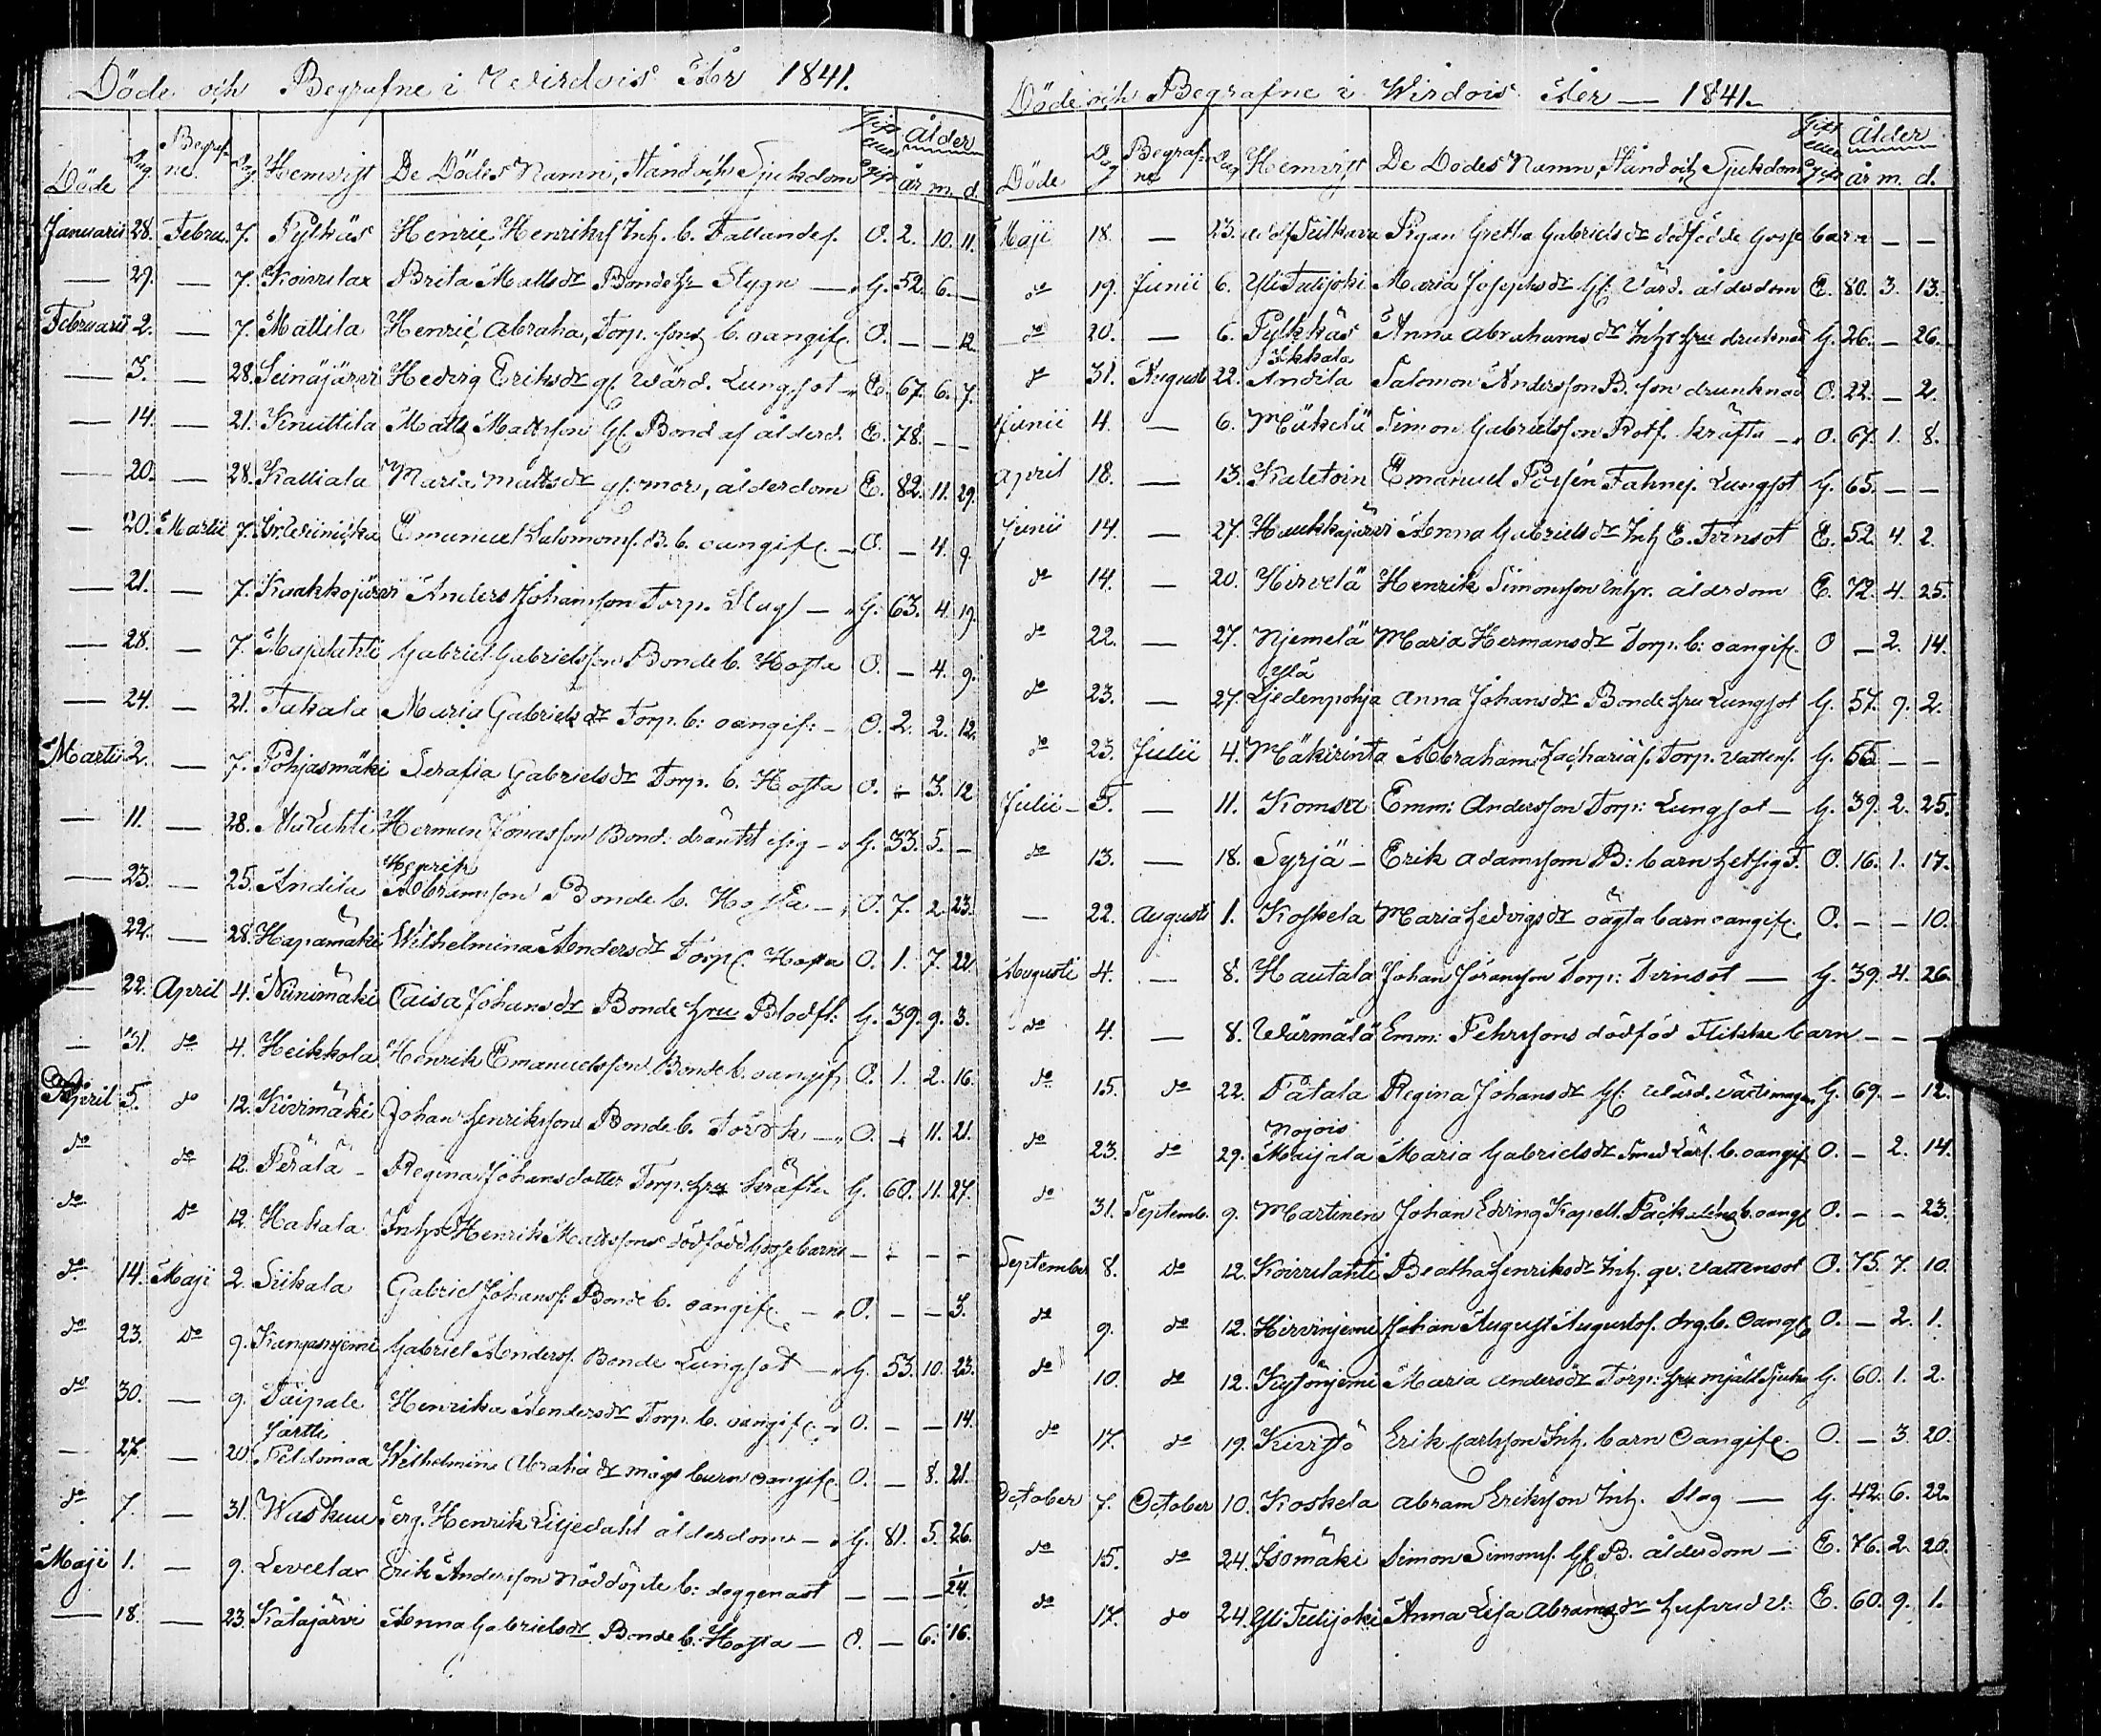 Döde och Begrafne i Wirdois År 1841.
Döde Dag. Begrafne. Dag. Hemvist De Dödes Namn, Stånd och Sjukdom Gift eller ogift Ålder år m. d.
Januarii 28. Febru. 7. Pylkäs Henric Henriks Inh. b. Fallandes. O. 2. 10. 11.
— 29. — 7. Koivulax Brita Mattsdr Bonde h: Stygn — G. 52. 6. —
Februarii 2. — 7. Mattila Henric Abraha, Torp. son b. oangif. O. — — 12.
— 3. — 28. Seinäjärvi Hedvig Eriksdr gl. Wärd. Lungsot — E. 67. 6. 7.
— 14. — 21. Knuttila Matts Mattsson Gl. Bond af ålderd. E. 78. — —
— 20. — 28. Kalliala Maria Mattsdr gl. mor, ålderdom E. 82. 11. 29.
— 20. Martii 7. Emanuel Salomons. B. b. oangif. — O. — 4. 9.
— 21. — 7. Kaakkojärvi Anders Johansson Torp. Slag — G. 63. 4. 19.
— 28. — 7. Majalahti Gabriel Gabrielsson Bonde b. Hosta O. — 4. 9.
— 24. — 21. Takala Maria Gabrielsdr Torp. b: oangif: — O. 2. 2. 12.
Martii 2. — 7. Pohjasmäki Serafia Gabrielsdr Torp. b. Hosta O. — 3. 12
— 11. — 28. Ala Lahti Herman Jonasson Bond: dränkt sig — G. 33. 5. —
— 23. — 25. Andila Henrik Abramsson Bonde b. Hosta — O. 7. 2. 23.
22. — 28. Hapamäki Wilhelmina Andersdr Torp. Hosta O. 1. 7. 22
— 22. April 4. Niinimäki Caisa Johansdr Bonde hru Blodfl: G. 39. 9. 3.
— 31. do 4. Heikkola Henrik Emanuelsson Bonde b. oangif. O. 1. 2. 16.
April 5. do 12. Kivimäki Johan Henriksson Bonde b. O. — 11. 21.
do do 12. Perälä — Regina Johansdotter Torp. hru kräfta G. 60. 11. 27.
do do 12. Hakala Inhs Henrik Mattssons dödfödd Gosse barn — — — —
do 14. Maji 2. Siikala Gabriel Johanss: Bonde b. oangif. — O. — — 3.
do 23. do 9. Kangasnjemi Gabriel Anderss. Bonde Lungsot — G. 53. 10. 23.
do 30. — 9. Taipale Henrika Andersdr Torp. b. oangif. — O. — — 14.
— 27. — 20. Järtti Feldimaa Wilhelmina Abraha dr mågs barn oangif. O. — 8. 21.
do 7. — 31. Waskuu Serg. Henrik Liljedahl ålderdom — G. 81. 5. 26.
Maji 1. — 9. Leveelax Erik Andersson nöddöpte b: — — — 1/24.
— 18. — 23. Katajärvi Anna Gabrielsdr Bonde b. Hosta — O. — 6. 16.
Döde och Begrafne i Wirdois År — 1841.
Döde Dag Begrafne Dag Hemvist De Dödes Namn, Stånd och Sjukdom Gift eller ogift Ålder år m. d.
Maji 18. — 23. Pigan Gretha Gabrielsdr dödfödde Gosse barn — —
do 19. Junii 6. Yli Tulijoki Maria Josephsdr Gl: Värd. ålderdom E. 80. 3. 13.
do 20. — 6. Pylkkäs Anna Abrahamsdr Inhs hru drunknad G. 26. — 26.
do 31. Augusti 22. Ikkala Andila Salomon Andersson B. son drunknad O. 22. — 2.
Junii 4. — 6. Mäkelä Simon Gabrielsson Rotf. kräfta — O. 67. 1. 8.
April 18. — 13. Kaletoin Emanuel Fahnej. Lungsot G. 65. — —
Junii 14. — 27. Haukkajärvi Anna Gabrielsdr Inh E. Tvinsot E. 52. 4. 2.
do 14. — 20. Hirvelä Henrik Simonsson Inhs. ålderdom E. 72. 4. 25.
do 22. — 27. Njemelä Maria Hermansdr Torp. b: oangif. O — 2. 14.
do 23. — 27. Ylä Liedenpohja Anna Johansdr Bonde hru Lungsot G. 57. 9. 2.
do 23. Julii 4. Mäkirinta Abraham Zacharias. Torp. Vattens. G. 55 — —
Julii — 5. — 11. Komsa Emm: Andersson Torp: Lungsot — G. 39. 2. 25.
do 13. — 18. Syrjä — Erik Adamsson B: barn hetsig F. O. 16. 1. 17.
— 22. Augusti 1. Koskela Maria Hedvigsdr oägta barn oangif. O. — — 10.
Augusti 4. — 8. Hautala Johan Göransson Torp: Tvinsot — G. 39. 4. 26.
do 4. — 8. Wärmälä Emm: Pehrssons dödföd Flikke barn — — —
do 15. do 22. Påtala Regina Johansdr Gl: Wärd. G. 69. — 12.
do 23. do 29. Nojois Maijala Maria Gabrielsdr Smed Lärl. b. oangif O. — 2. 14.
do 31. Septemb. 9. Martinen Johan Edving Kapell. b. oangf O. — — 23.
September 8. do 12. Koivulahti Beatha Henriksdr Inh. qv. Vattensot O. 75. 7. 10.
do 9. do 12. Hirvinjemi Johan August Augustss. drg. b. Oangf O. — 2. 1.
do 10. do 12. Kytönjemi Maria Andersdr Torp: hru mjältsjuka G. 60. 1. 2.
do 17. do 19. Kivistö Erik Carlsson Inh. barn Oangif. O. — 3. 20.
October 7. October 10. Koskela Abram Eriksson Inh. Slag — G. 42. 6. 22.
do 15. do 24. Isomäki Simon Simons. Gl. B. ålderdom — E. 76. 2. 20.
do 17. do 24. Yli Tulijoki Anna Lisa Abramsdr hufvud v. E. 60. 9. 1.